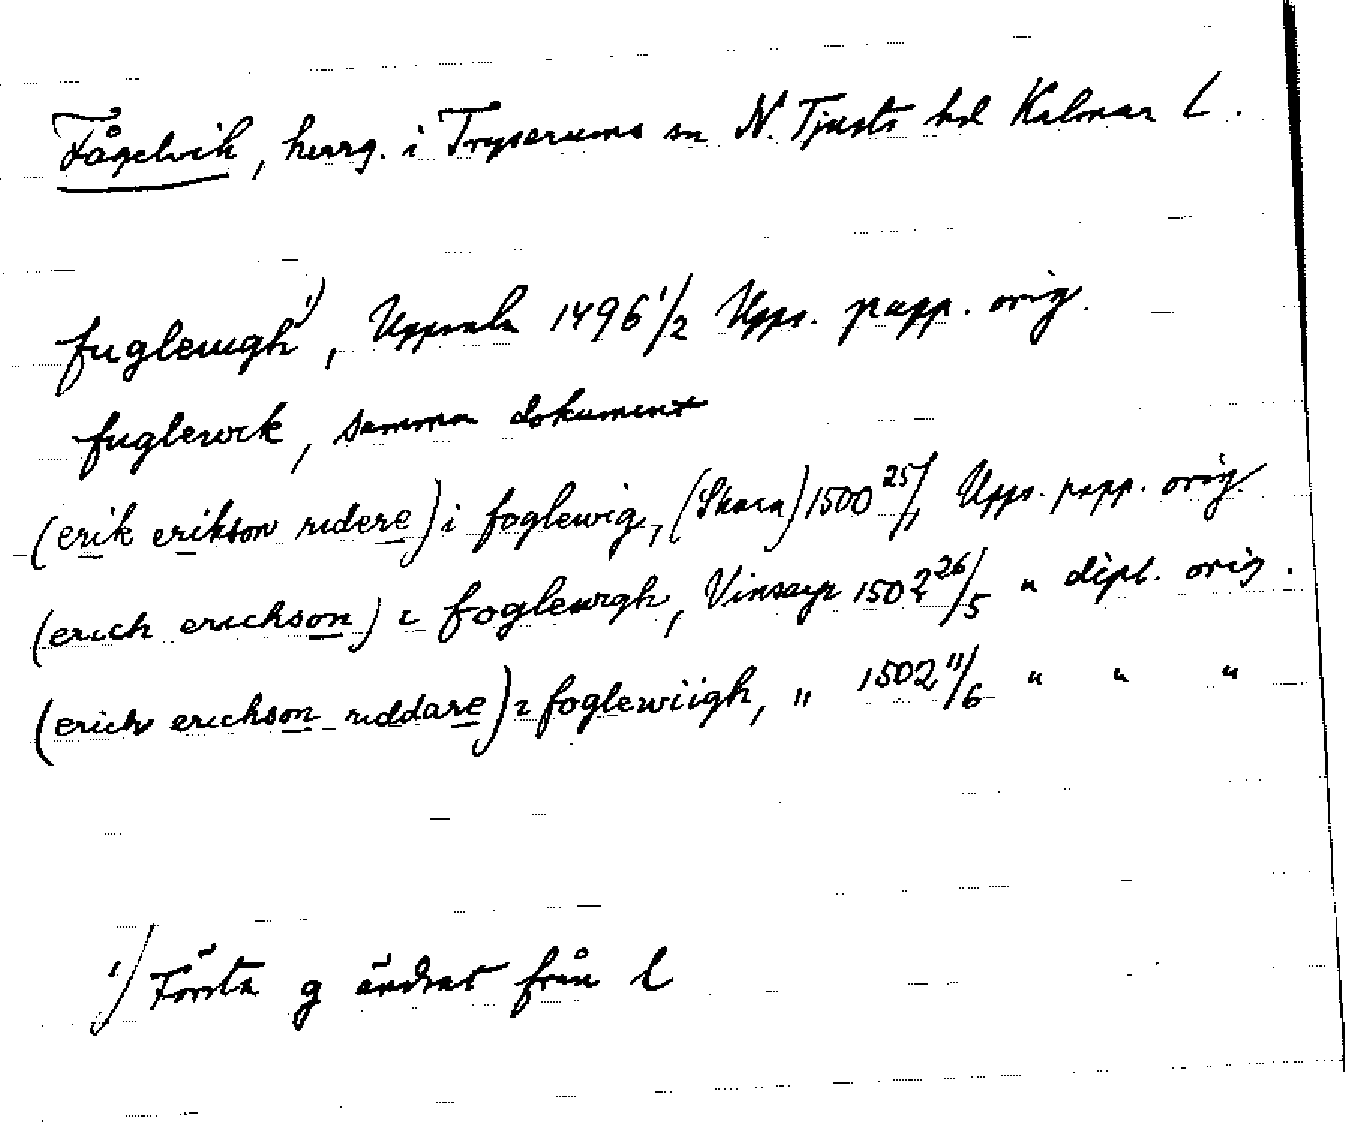 Fågelvik, herrg. i Tryserums sn N. Tjusts hd Kalmar l.
fuglewigh¹⁾, Uppsala 1496 1/2 Upps. papp. orig.
fuglewik, samma dokument
(erik erikson ridere) i foglewig, (Skara) 1500 25/1 Upps. papp. orig.
(erich erichson) i foglewigh, 1502 26/5 " dipl. orig.
(erich erichson riddare) i foglewiigh, " 1502 11/6 " " "
1) Första g ändrat från l